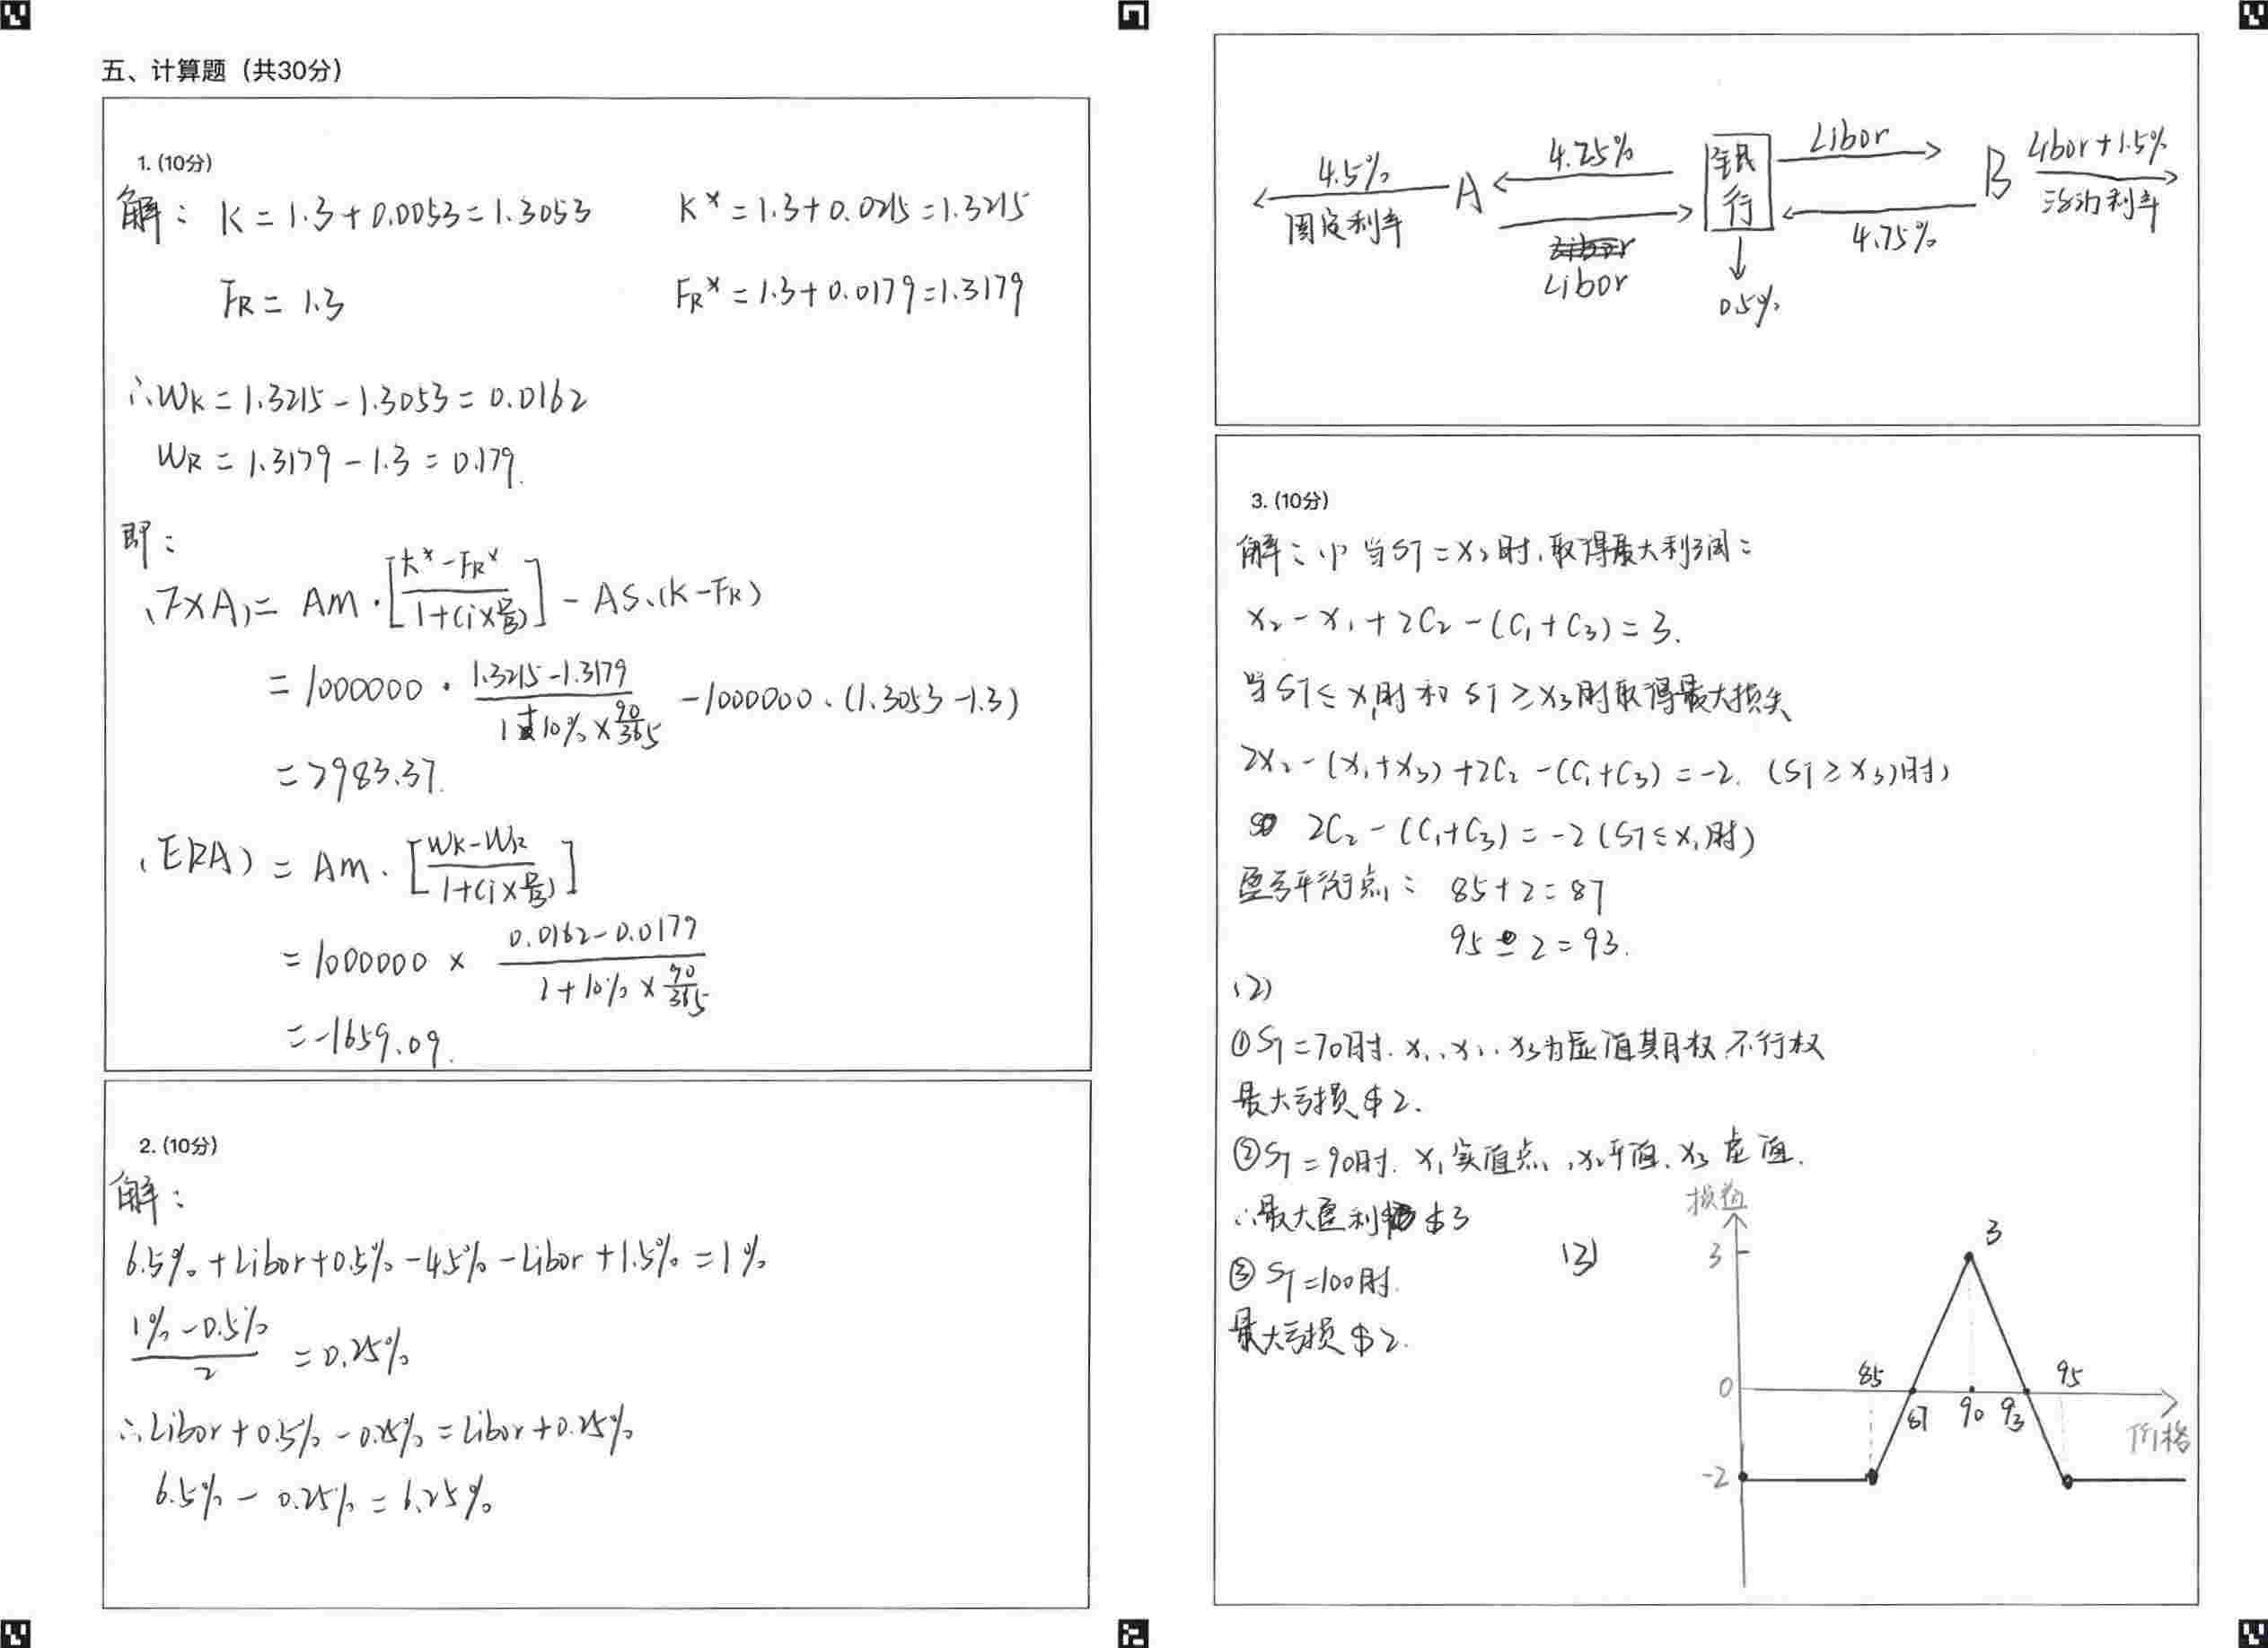 五、计算题（共30分）
1. (10分)
解： K = 1.3 + 0.0053 = 1.3053 K* = 1.3 + 0.0215 = 1.3215
FR = 1.3 FR* = 1.3 + 0.0179 = 1.3179
∴WK = 1.3215 - 1.3053 = 0.0162
WR = 1.3179 - 1.3 = 0.179.
即：
(FXA) = Am · [(K* - FR*) / (1 + (i × D/B))] - AS · (K - FR)
= 1000000 · (1.3215 - 1.3179) / (1 + 10% × 90/365) - 1000000 · (1.3053 - 1.3)
= 2983.37.
(ERA) = Am · [(WK - WR) / (1 + (i × D/B))]
= 1000000 × (0.0162 - 0.0179) / (1 + 10% × 90/365)
= -1659.09.
2. (10分)
解：
6.5% + Libor + 0.5% - 4.5% - Libor + 1.5% = 1%
(1% - 0.5%) / 2 = 0.25%
∴Libor + 0.5% - 0.25% = Libor + 0.25%
6.5% - 0.25% = 6.25%
4.5% 4.25% Libor Libor + 1.5%
A 银行 B
固定利率 Libor 4.75% 浮动利率
0.5%
3. (10分)
解：(1) 当ST = X2时，取得最大利润：
X2 - X1 + 2C2 - (C1 + C3) = 3.
当ST ≤ X1时和 ST ≥ X3时取得最大损失
2X2 - (X1 + X3) + 2C2 - (C1 + C3) = -2. (ST ≥ X3)时)
2C2 - (C1 + C3) = -2 (ST ≤ X1时)
盈亏平衡点： 85 + 2 = 87
95 - 2 = 93.
(2)
①ST = 70时. X1、X2、X3为虚值期权 不行权
最大亏损 $2.
②ST = 90时. X1实值点, X2平值、X3 虚值.
∴最大盈利 $3
③ ST = 100时.
最大亏损 $2.
(3)
损益
3
3
85 95
0
87 90 93
价格
-2